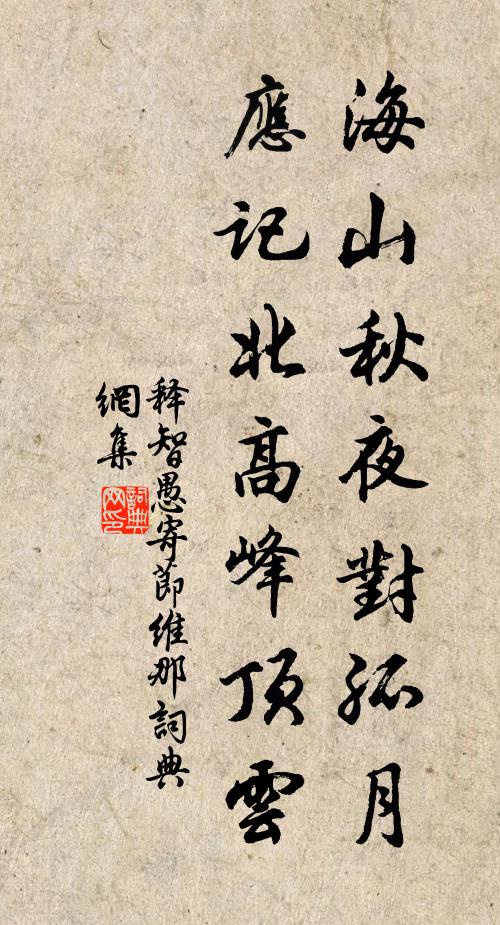 海山秋夜對孤月
應記北高峰頂雲
释智愚寄節維那詞典
網集
詞典
网印